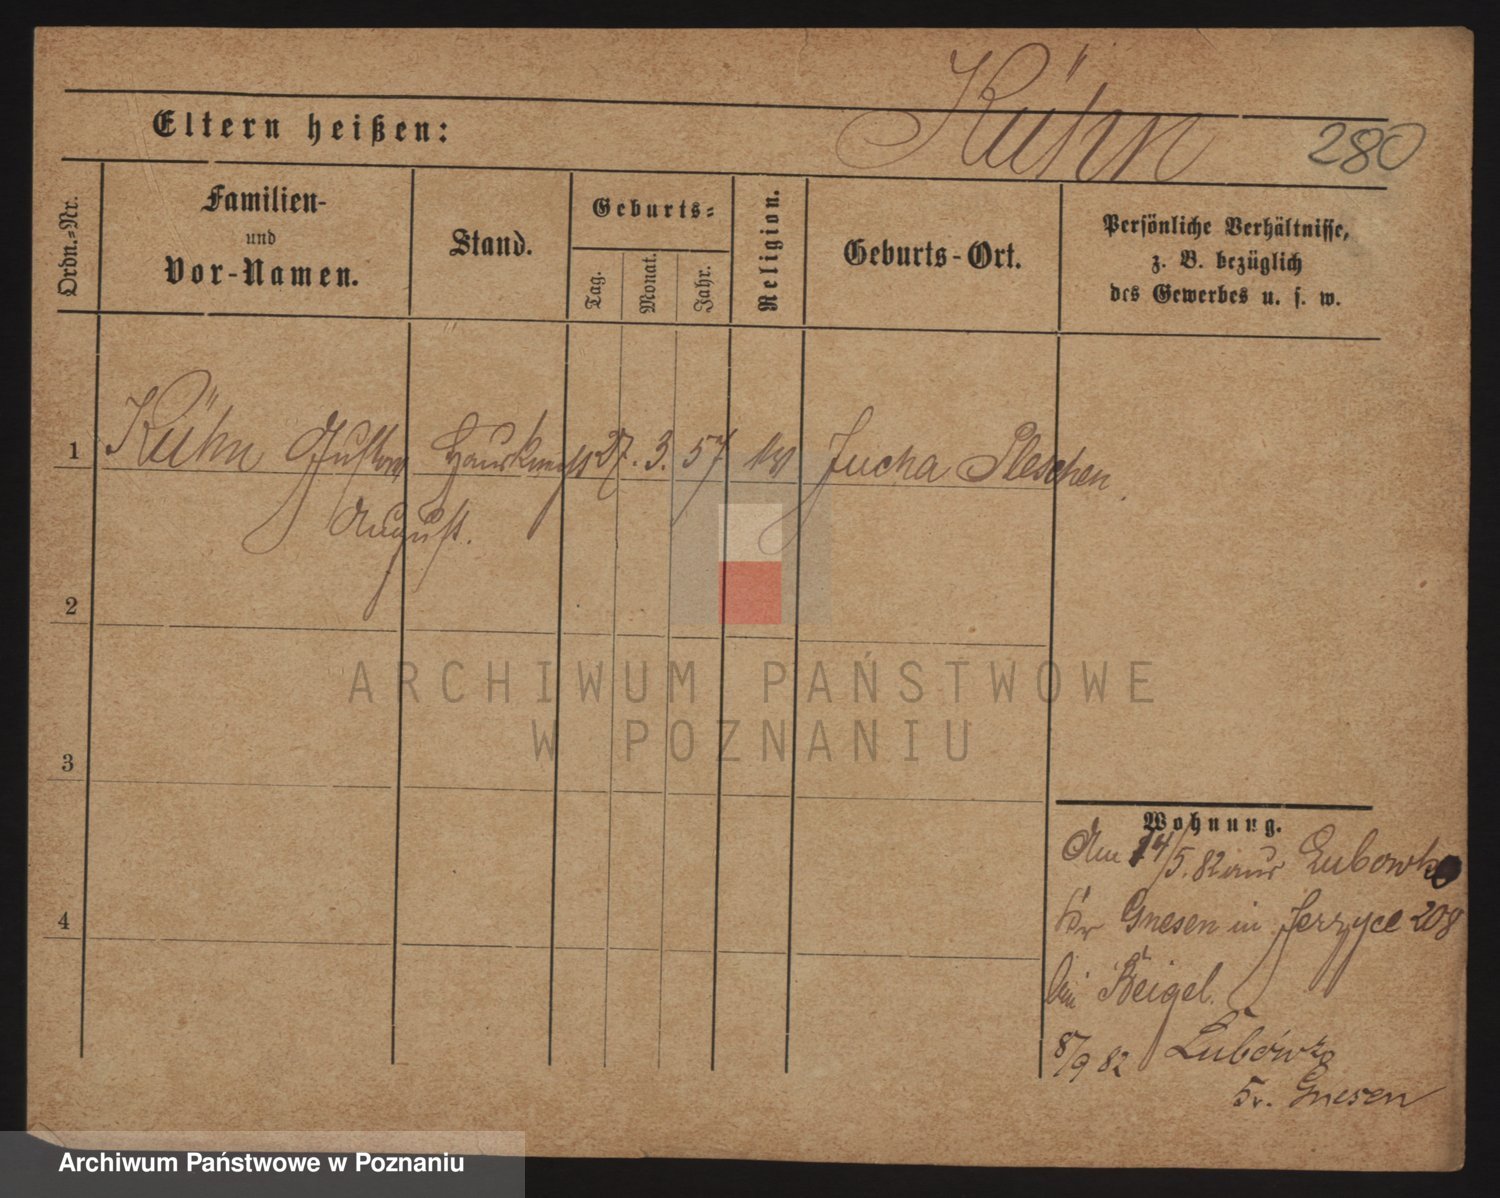 Kühn
280
Eltern heißen:
Ordn.-Nr.
Familien-
und
Vor-Namen.
Stand.
Geburts-
Tag.
Monat.
Jahr.
Religion.
Geburts-Ort.
Persönliche Verhältnisse,
z. B. bezüglich
des Gewerbes u. s. w.
1
Kühn Gustav
August.
Hausknecht
27. 3. 57
Jucha Pleschen.
2
3
4
Wohnung.
Am 14/5. 82 aus Lubowko
Kr Gnesen in Jerzyce 208
bei Beigel.
8/9 82 Lubówko
Gnesen
ARCHIWUM PAŃSTWOWE
W POZNANIU
Archiwum Państwowe w Poznaniu